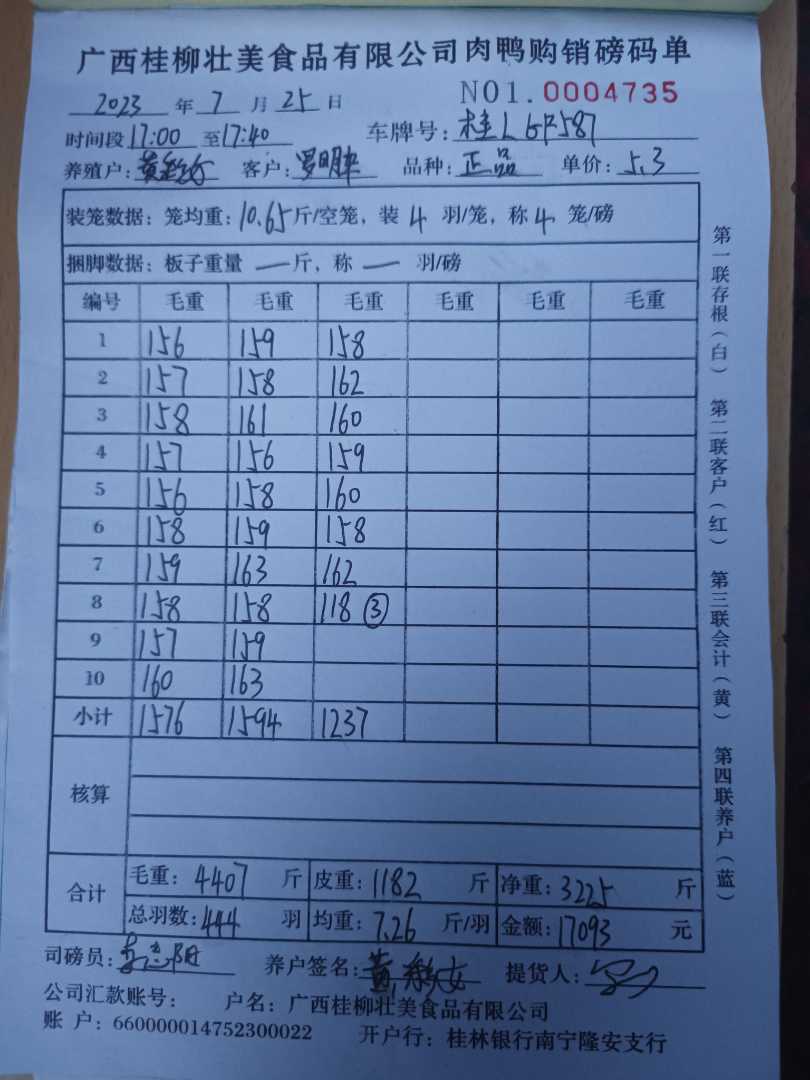 广西桂柳壮美食品有限公司肉鸭购销磅码单
2023 年 7 月 25 日 NO1.0004735
时间段 17:00 至 17:40 车牌号: 桂L
养殖户: 黄 客户: 罗 品种: 正品 单价: 5.3
装笼数据: 笼均重: 10.65 斤/空笼, 装 4 羽/笼, 称 4 笼/磅
捆脚数据: 板子重量 — 斤, 称 — 羽/磅
编号 毛重 毛重 毛重 毛重 毛重 毛重
1 156 159 158
2 157 158 162
3 158 161 160
4 157 156 159
5 156 158 160
6 158 159 158
7 159 163 162
8 158 158 118 ③
9 157 159
10 160 163
小计 1576 1594 1237
核算
合计 毛重: 4407 斤 皮重: 1182 斤 净重: 3225 斤
总羽数: 444 羽 均重: 7.26 斤/羽 金额: 17093 元
司磅员: 养户签名: 黄 提货人:
公司汇款账号: 户名: 广西桂柳壮美食品有限公司
账 户: 660000014752300022 开户行: 桂林银行南宁隆安支行
第一联存根(白) 第二联客户(红) 第三联会计(黄) 第四联养户(蓝)